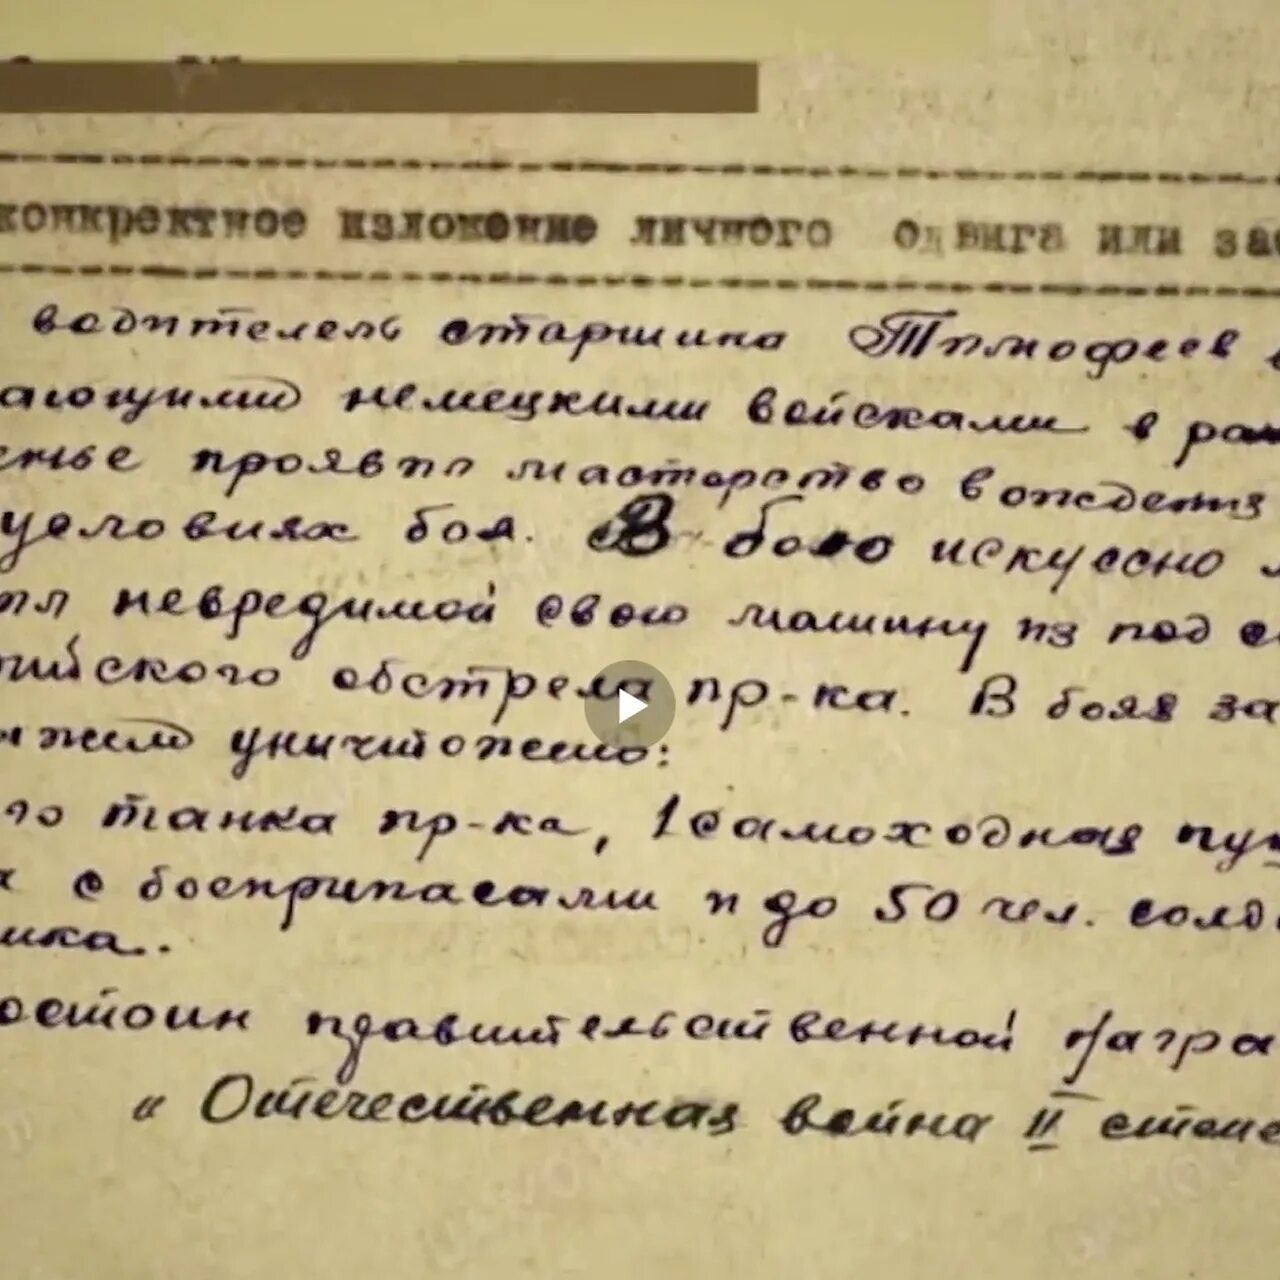 конкретное изложение личного одвига или зас
водитель старшина Тимофеев
ающими немецкими войсками в рай
енье проявил мастерство вождения
условиях боя. В бою искуссно
ил невредимой свою машину из под
ийского обстрела пр-ка. В боях за
уничтожено:
го танка пр-ка, 1 самоходная пуш
с боеприпасами и до 50 чел. солд
ика.
остоин правительственной награ
" Отечественная война II степе